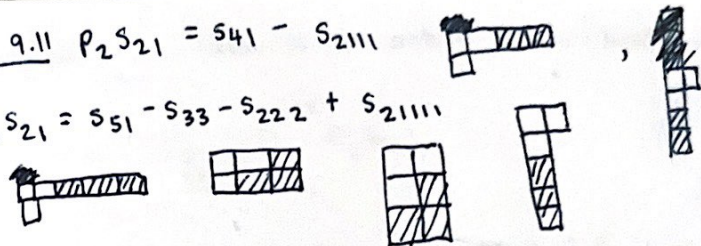 9.11 p₂ s₂₁ = s₄₁ - s₂₁₁₁ ,
s₂₁ = s₅₁ - s₃₃ - s₂₂₂ + s₂₁₁₁₁